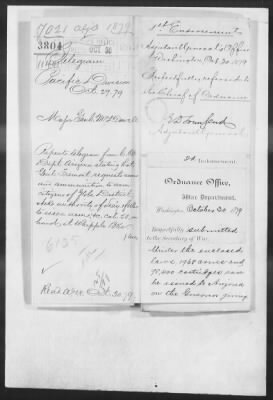 7021 AGO 1879
3804
Telegram
Pacific Division
Oct. 29. 79
Major Genl. McDowell
Repeats telegram from C. O.
Dept. Arizona stating that
Genl. requests arms
and ammunition to arm
citizens of District.
Asks authority of Secy of War
to issue arms &c. cal. 50, on
hand, at Whipple Bks.
6135
Read Oct. 30 79
1st Endorsement
Adjutant General's Office
Washington, Oct. 30. 1879
Respectfully referred to
the Chief of Ordnance
E D Townsend
Adjutant General
2d Indorsement.
Ordnance Office,
War Department,
Washington, October 30 1879
Respectfully submitted
to the Secretary of War.
Under the enclosed
law 1968 arms and
cartridges can
be issued to Arizona
on the Governor giving